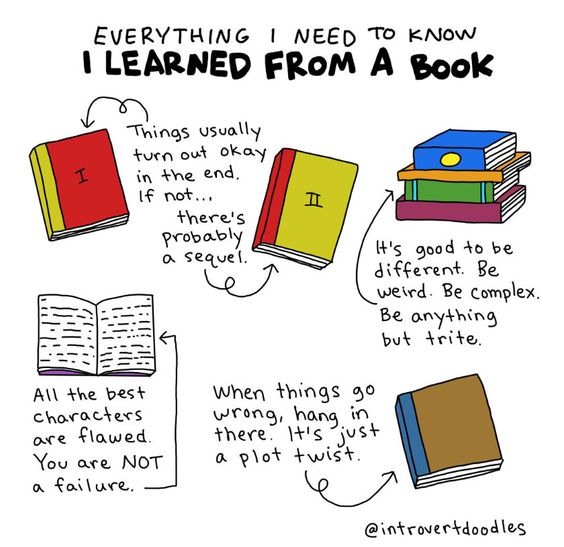 EVERYTHING I NEED TO KNOW
I LEARNED FROM A BOOK
I
Things usually
turn out okay
in the end.
If not...
there's
probably
a sequel.
II
It's good to be
different. Be
weird. Be complex.
Be anything
but trite.
All the best
characters
are flawed.
You are NOT
a failure.
When things go
wrong, hang in
there. It's just
a plot twist.
@introvertdoodles